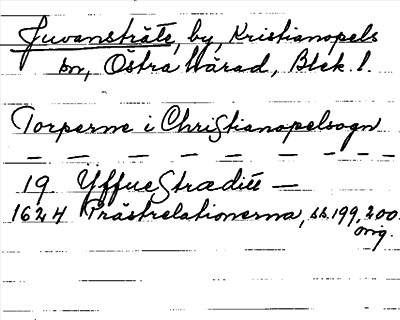 Juvansträte, by, Kristianopels
sn, Östra härad, Blek. l.
Torperne i Christianopelsogn
— — — — — — — —
19 YffueStræditt —
1624 Prästrelationerna, ss. 199, 200.
orig.